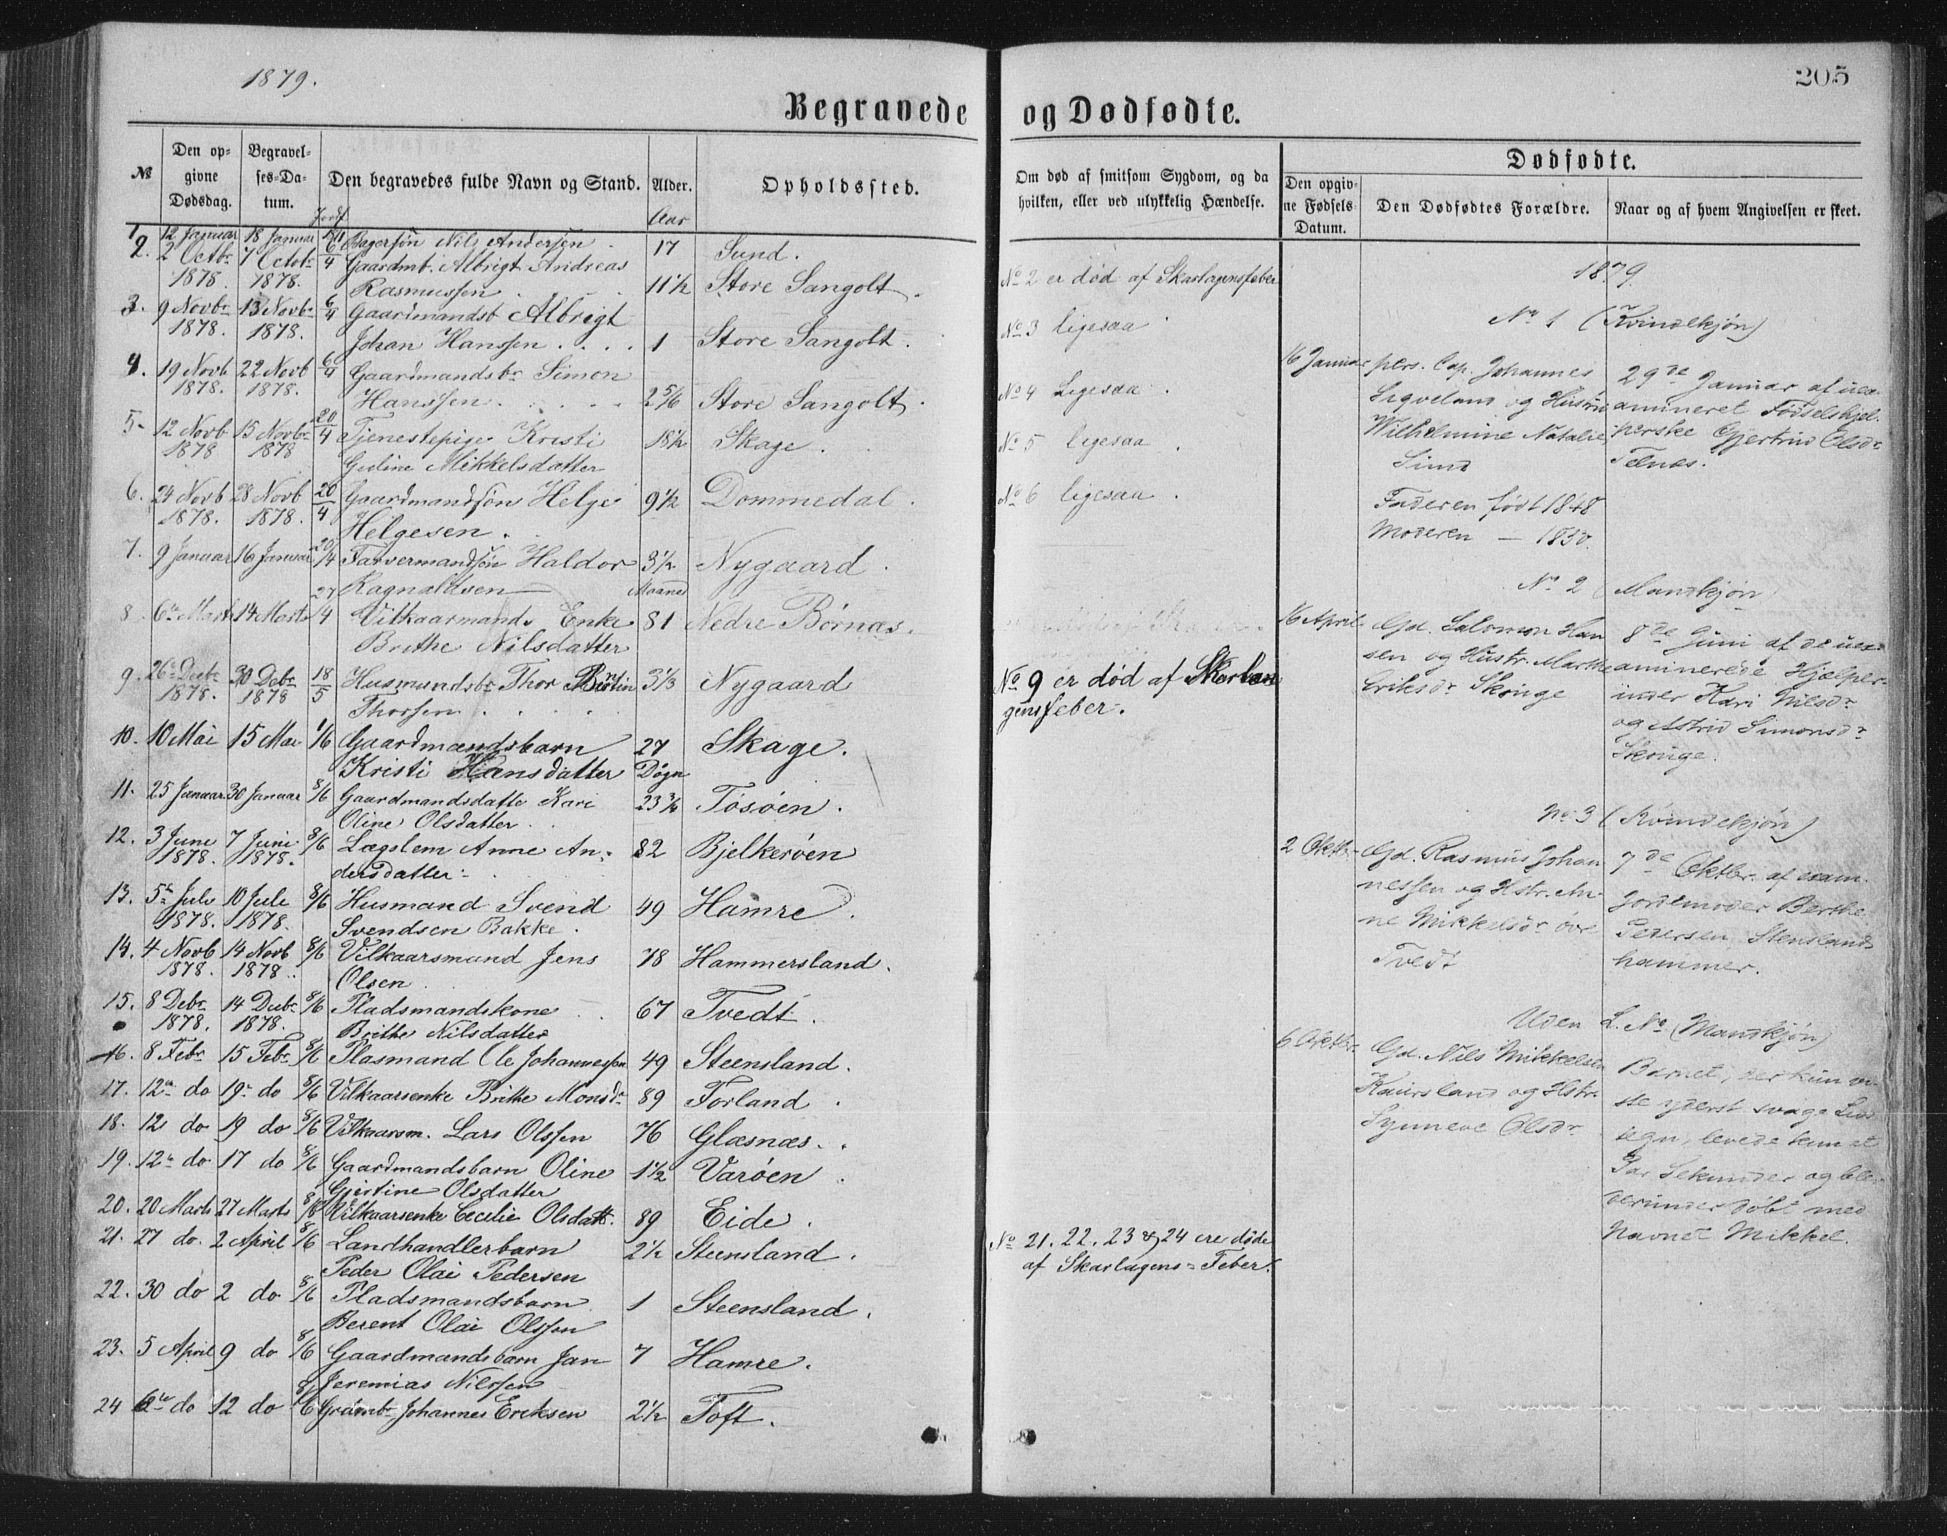 1879.
205
Begravede og Dødfødte.
№
Den op-
givne
Dødsdag.
Begravel-
ses-Da-
tum.
Jordf.
Den begravedes fulde Navn og Stand.
Alder.
Aar
Opholdssted.
1. 12 Januar 18 Januar Nils Andersen 17 Sund.
2. 2 Octbr 7 Octobr 6/4 Gaardmb. Albrigt Andreas
1878. 1878. Rasmussen 11 1/2 Store Sangolt.
3. 9 Novbr 13 Novbr 6/4 Gaardmandsb Albrigt
1878. 1878. Johan Hanssen 1 Store Sangolt.
4. 19 Novb 22 Novb 6/4 Gaardmandsbr Simon
1878. 1878. Hanssen 2 5/6 Store Sangolt.
5. 12 Novb 15 Novbr 20/4 Tjenestepige Kristi 18 1/2 Skage.
1878 1878 Guline Mikkelsdatter
6. 24 Novb 28 Novb 20/4 Gaardmandsøn Helge 9 1/2 Dommedal.
1878. 1878. Helgesen.
7. 9 Januar 16 Januar 20/4 Farvermandsøn Haldor 3 1/2 Nygaard.
Ragnaldsen Maaned
8. 6te Marts 14 Marts 27/4 Vilkaarmands Enke 81 Nedre Børnæs.
Brithe Nilsdatter
9. 26 Decbr 30 Debr 18/5 Husmandsbr Thor 3 1/3 Nygaard
1878. 1878 Thorsen
10. 10 Mai 15 Mai 1/6 Gaardmandsbarn 27 Skage.
Kristi Hansdatter Døgn
11. 25 Januar 30 Januar 8/6 Gaardmandsdatte Kari 23 3/4 Tøsøen.
Oline Olsdatter
12. 3 June 7 Juni 8/6 Lægslem Anne An- 82 Bjelkerøen
1878. 1878. dersdatter.
13. 5te Juli 10 Jule 8/6 Husmand Svend 49 Hamre.
1878. 1878. Svendsen Bakke.
14. 4 Novb 14 Novb 8/6 Vilkaarsmand Jens 78 Hammersland.
1878. 1878. Olsen.
15. 8 Debr 14 Decbr 8/6 Pladsmandskone 67 Tvedt.
1878. 1878. Brithe Nilsdatter
16. 8 Febr 15 Febr 8/6 Plasmand Ole Johannessen 49 Steensland.
17. 12te do 19. do 8/6 Vilkaarsenke Brithe Monsdr 89 Forland.
18. 12 do 19 do 8/6 Vilkaarsm. Lars Olssen 76 Glæsnæs.
19. 12te do 17 do 8/6 Gaardmandsbarn Oline 1 1/2 Varøen.
Gjertine Olsdatter
20. 20 Marts 27 Marts 8/6 Vilkaarsenke Cecilie Olsdatt. 89 Eide.
21. 27 do. 2 April 8/6 Landhandlerbarn 2 1/2 Steensland.
Peder Olai Pedersen
22. 30 do 2 do 8/6 Pladsmandsbarn 1 Steensland.
Berent Olai Olssen
23. 5 April 9 do 8/6 Gaardmandsbarn Jan 7 Hamre.
Jeremias Nilssen
24 6te do 12 do 8/6 Grdmb. Johannes Eriksen 2 1/2 Toft.
Om død af smitsom Sygdom, og da
hvilken, eller ved ulykkelig Hændelse.
No 2 er død af Skarlagensfeber
No 3 ligesaa
No 4 Ligesaa
No 5 ligesaa.
No 6 ligesaa.
No 9 er død af Skarla-
gensfeber.
No 21. 22. 23 & 24 ere døde
af Skarlagens-Feber.
Dødfødte.
Den opgiv-
ne Fødsels-
Datum.
Den Dødfødtes Forældre.
Naar og af hvem Angivelsen er skeet.
1879.
No 1 (Kvindekjøn)
16 Januar pers. Cap. Johannes
Ligveland og Hustru
Wilhelmine Natalie
Sund
Faderen født 1848
Moderen — 1850.
29de Januar af uex-
amineret Fødselshjel-
perske Gjertrud Olsdr
Telnæs.
No 2 (Mandkjøn)
16 April. Gd. Salomon Han
sen og Hustr. Marthe
Eriksdr Skouge
8de Juni af de uex-
aminerede Hjælper-
inder Kari Nilsdr
og Astrid Simonsdr
Skouge.
No 3 (Kvindekjøn)
2 Oktbr. Gd. Rasmus Johan
nessen og Hstr. An-
ne Mikkelsdr øvre
Tvedt
7de Oktbr. af exam.
Jordemoder Berthe
Pedersen Stensland-
hammer.
Uden L. No (Mandkjøn)
6 Oktbr. Gd. Nils Mikkelsen
Kaursland og Hstr.
Synneve Olsdr
Barnet, der kun vi-
ste yderst svage Livs-
tegn, levede kun et
Par Sekunder og blev
derunder døbt med
Navnet Mikkel.